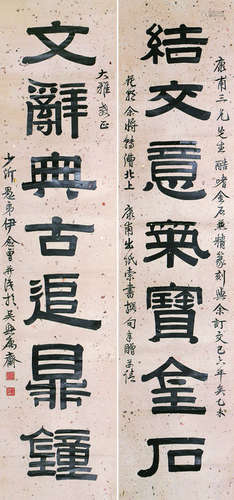 結交意氣寶金石
康甫三兄先生酷嗜金石兼精篆刻與余訂交已六年矣乙未
花朝余將轉漕北上 康甫出紙索書撰句奉贈并請
大雅教正
文辭典古追鼎鐘
少沂愚弟伊念曾并識於吳興寓齋